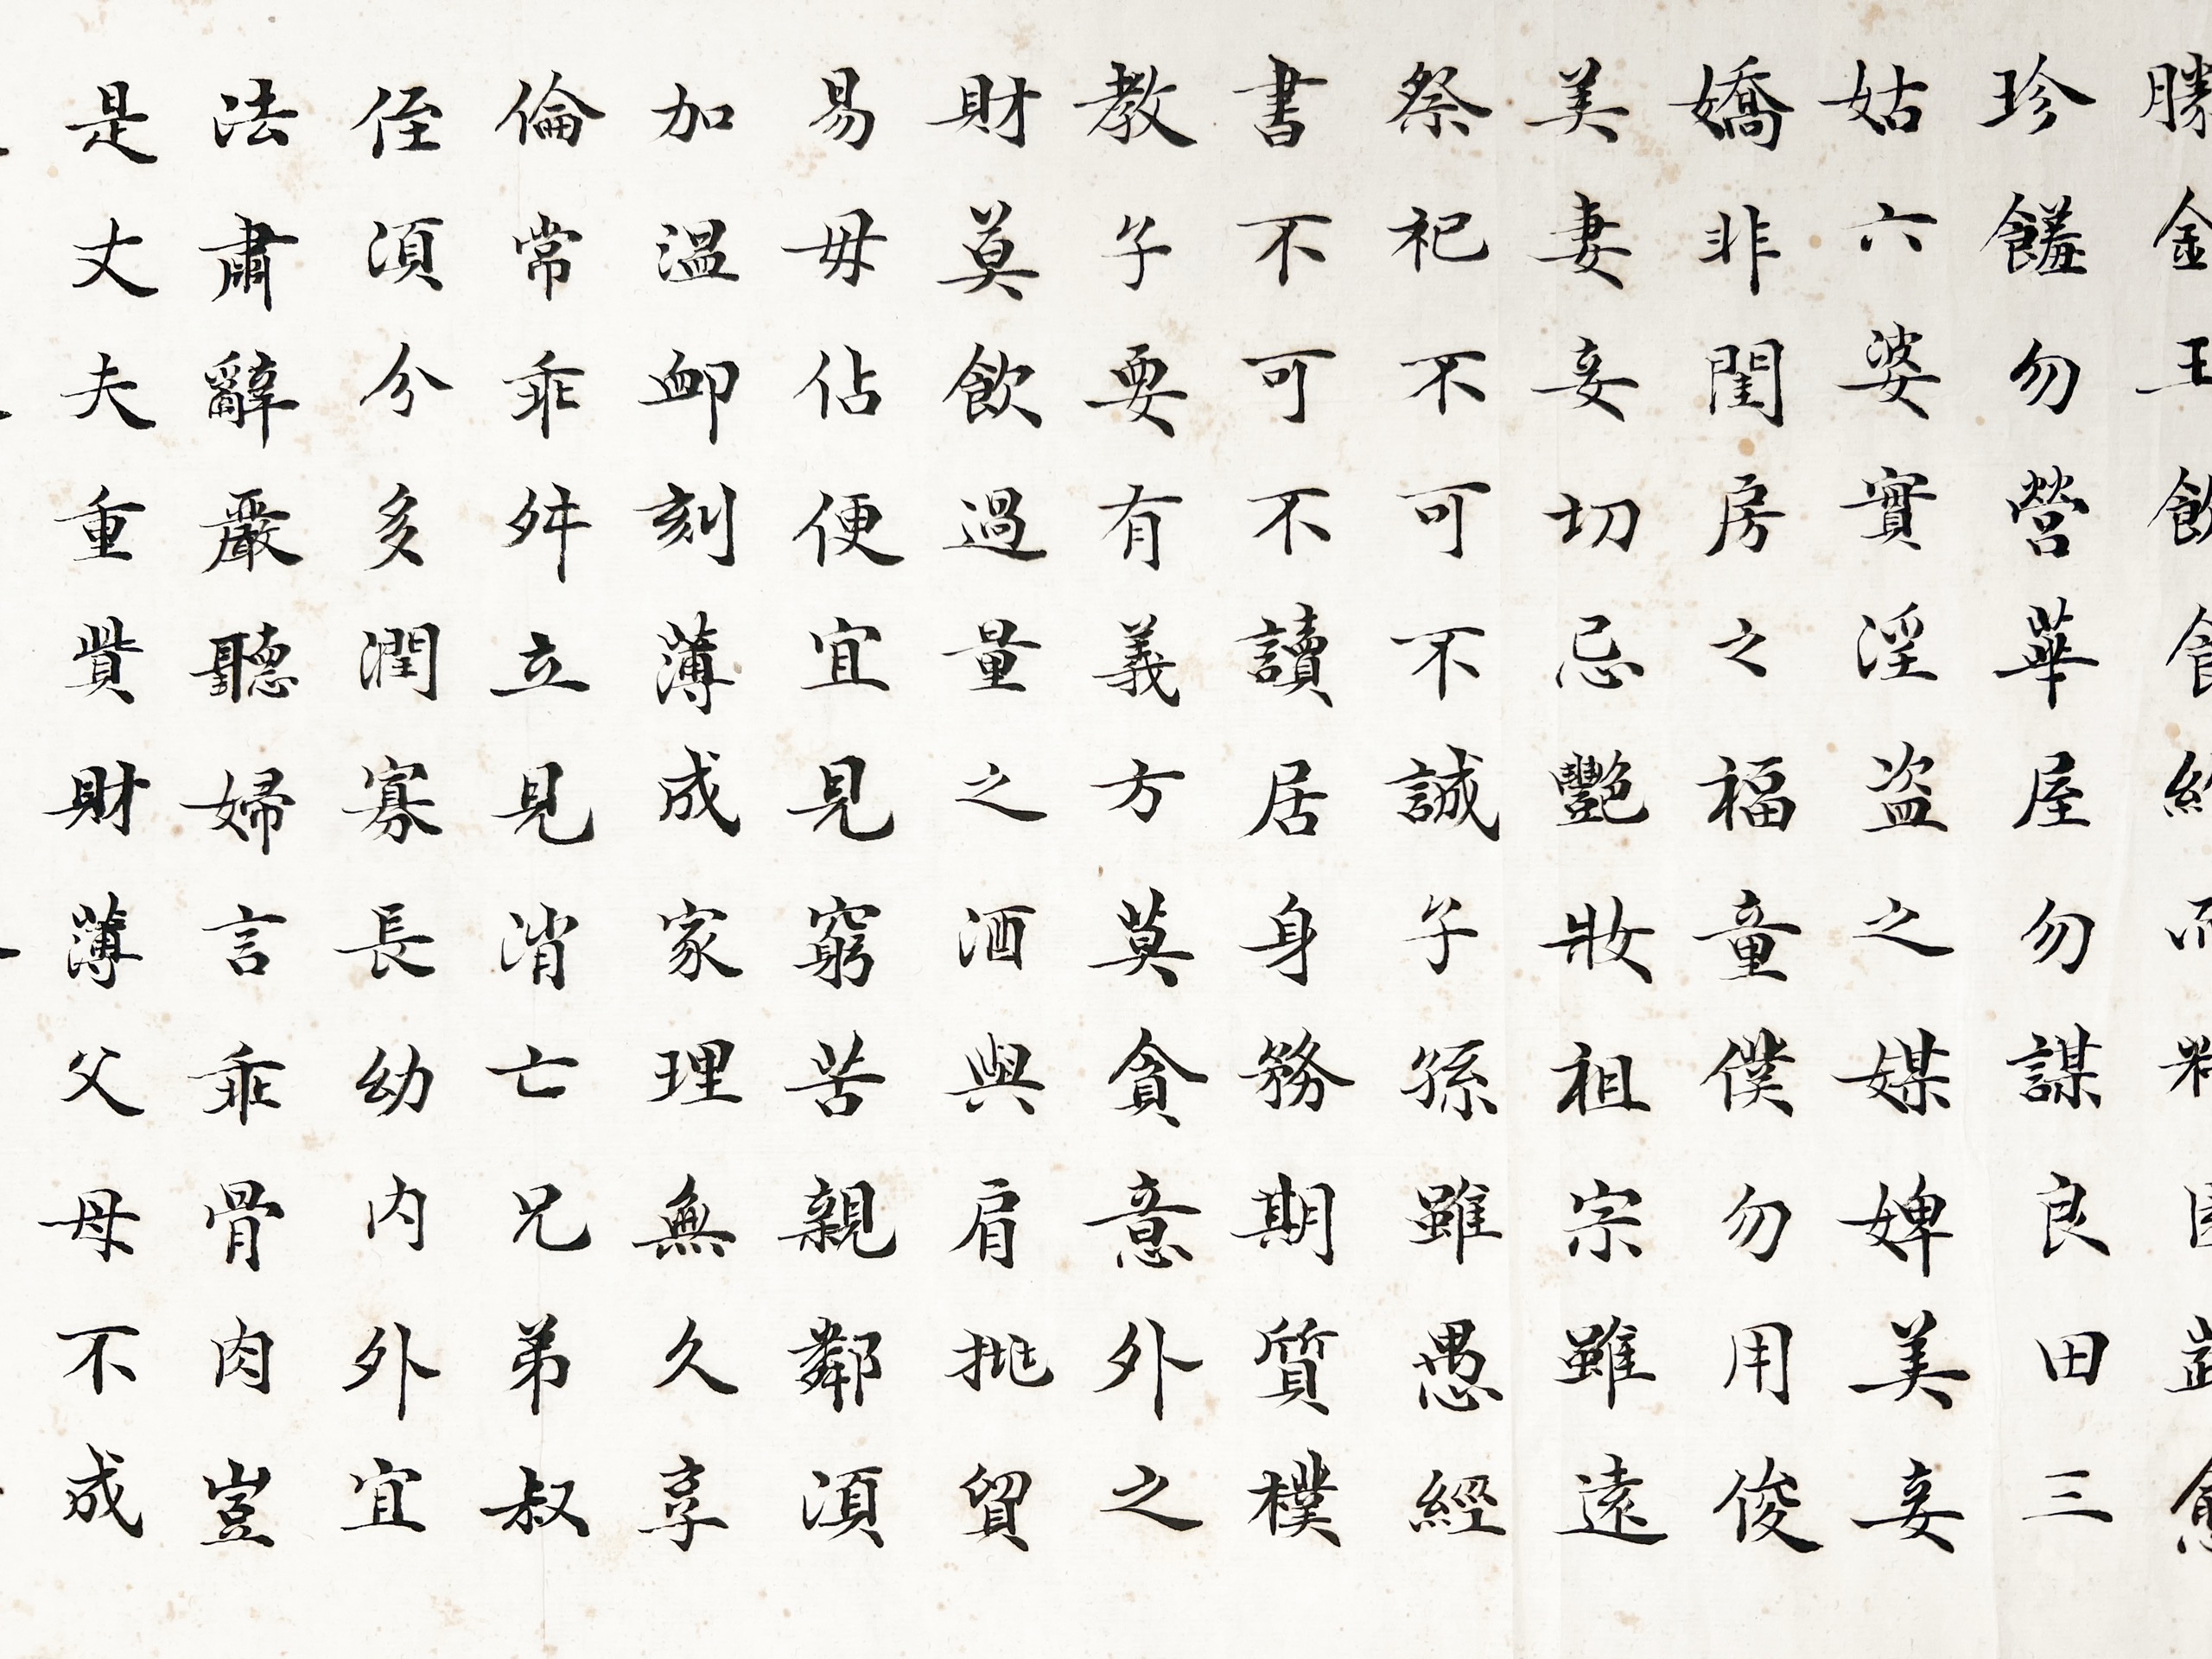 勝金玉飲食約而
珍饈勿營華屋勿謀良田三
姑六婆實淫盗之媒婢美妾
嬌非閨房之福童僕勿用俊
美妻妾切忌艷妝祖宗雖遠
祭祀不可不誠子孫雖愚經
書不可不讀居身務期質樸
教子要有義方莫貪意外之
財莫飲過量之酒與肩挑貿
易毋佔便宜見窮苦親鄰須
加温卹刻薄成家理無久享
倫常乖舛立見消亡兄弟叔
侄須分多潤寡長幼内外宜
法肅辭嚴聽婦言乖骨肉豈
是丈夫重貲財薄父母不成